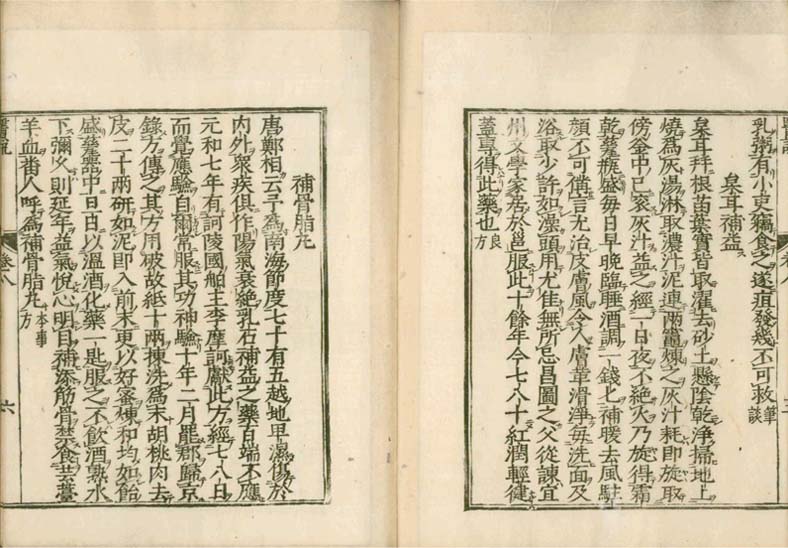 乳粥有小吏竊食之遂疽發幾不可救筆談
枲耳補益
枲耳拜根苗葉實皆取濯去砂土懸陰乾淨掃地上
燒為灰湯淋取濃汁泥連兩竈煉之灰汁耗即旋取
傍釜中已衮灰汁益之經一日夜不絶火乃旋得霜
乾甆瓶盛每日早晚臨睡酒調一錢匕補暖去風駐
顔不可備言尤治皮膚風令人膚革滑淨每洗面及
浴取少許如澡頭用尤佳無所忌昌圖之父從諫宜
州文學家居於邕服此十餘年今七八十紅潤輕健
蓋專得此藥也良方
補骨脂丸
唐鄭相云予為南海節度七十有五越地卑濕傷於
内外衆疾俱作陽氣衰絶乳石補益之藥百端不應
元和七年有訶陵國舶主李摩訶獻此方經七八日
而覺應驗自爾常服其功神驗十年二月罷郡歸京
録方傳之其方用破故紙十兩揀洗為末胡桃肉去
皮二十兩研如泥即入前末更以好蜜煉和均如飴
盛甆器中旦日以溫酒化藥一匙服之不飲酒熟水
下彌久則延年益氣悦心明目補添筋骨禁食芸薹
羊血番人呼為補骨脂丸本事方
醫説
卷八
六